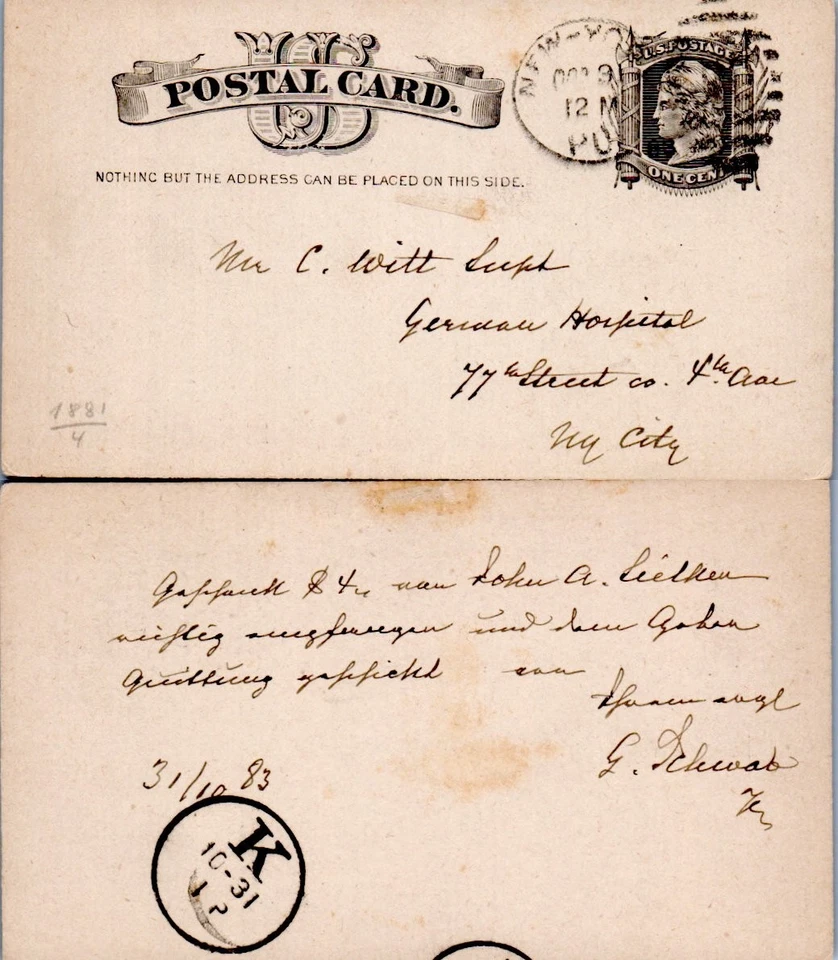 U S
POSTAL CARD.
NOTHING BUT THE ADDRESS CAN BE PLACED ON THIS SIDE.
NEW-YO
OCT 31
12 M
U.S. POSTAGE
ONE CENT
Mr C. Witt Supt
German Hospital
77th Street co. 4th Ave
NY City
1881
4
Geschenk $ 4,, von John A. Sielken
richtig empfangen und dem Geber
Quittung geschickt von
Ihrem ergl
G. Schwab
31/10 83
K
10-31
1 P